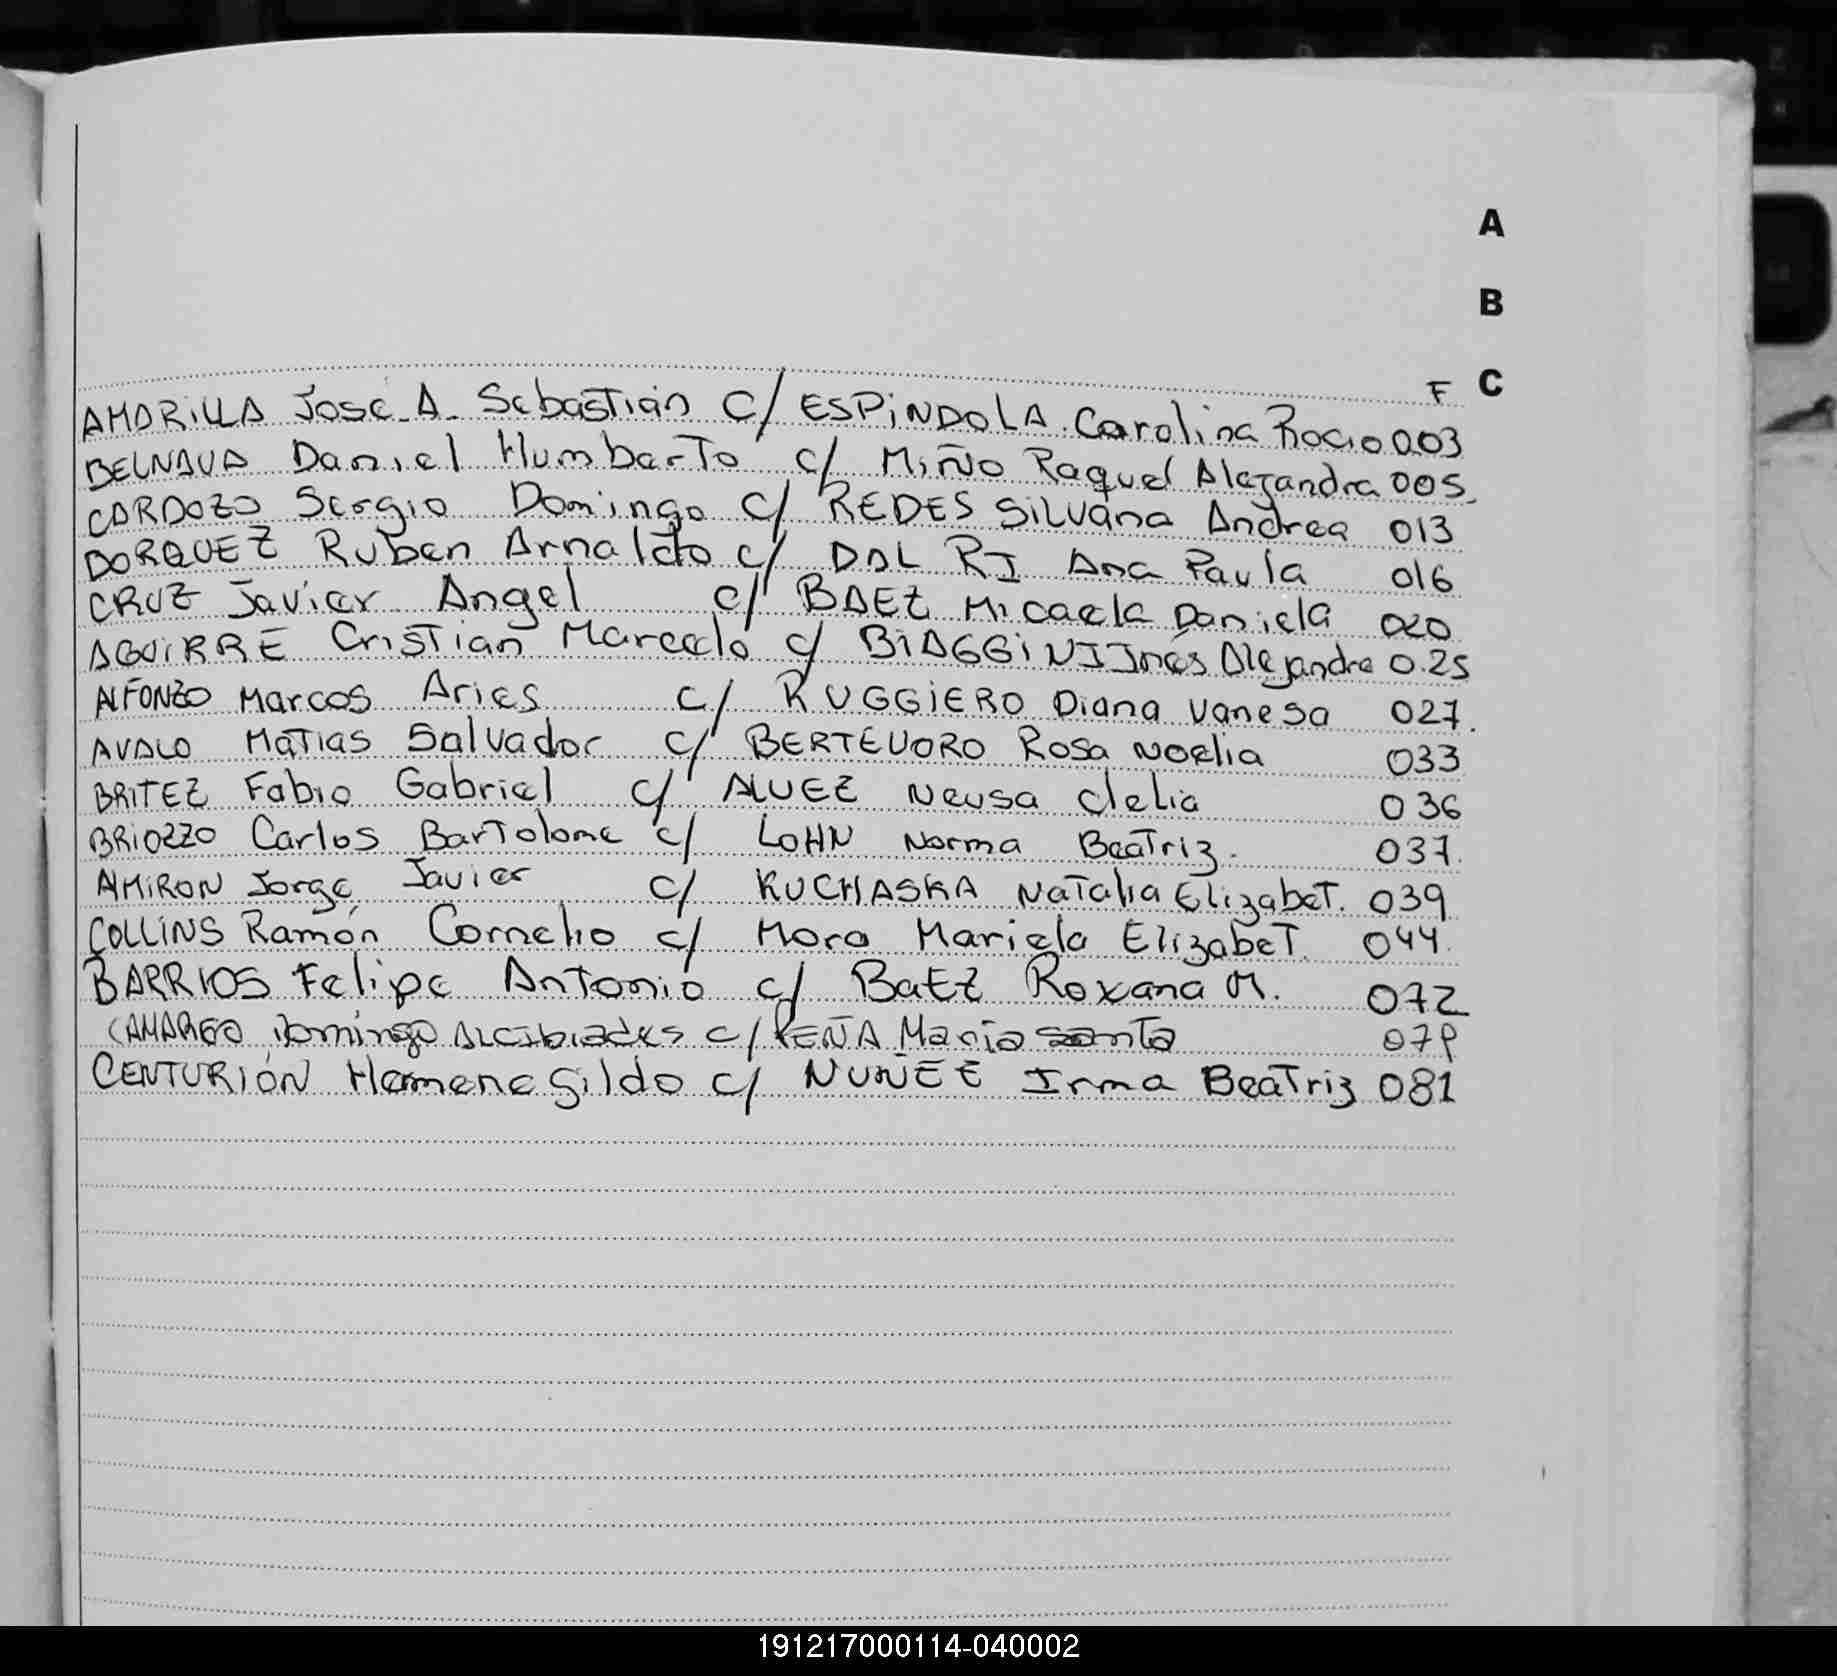 A
B
F C
AMARILLA José A. Sebastián C/ ESPiNDOLA Carolina Rocio 003
BELNAVA Daniel Humberto c/ MiÑo Raquel Alejandra 005
CARDOZO Sergio Domingo c/ REDES Silvana Andrea 013
DORQUEZ Ruben Arnaldo c/ DAL RI Ana Paula 016
CRUZ Javier Angel c/ BAEZ Micaela Daniela 020
AGUiRRE Cristian Marcelo c/ BiAGGiNI Inés Alejandra 0.25
ALFONZO Marcos Aries c/ RUGGiERO Diana Vanesa 027.
AVALO Matias Salvador c/ BERTEVORO Rosa Noelia 033
BRiTEZ Fabio Gabriel c/ ALVEZ Neusa Clelia 036
BRiOZZO Carlos Bartolome c/ LOHN Norma Beatriz. 037.
AMiRON Jorge Javier c/ KUCHASKA Natalia Elizabet. 039
COLLiNS Ramón Cornelio c/ Mora Mariela Elizabet. 044.
BARRIOS Felipe Antonio c/ BaEZ Roxana M. 072
CAMARGO Domingo Alcibiades c/ PEÑA Maria Santa 079
CENTURIÓN Hermenegildo c/ NUÑEZ Irma Beatriz 081
191217000114-040002